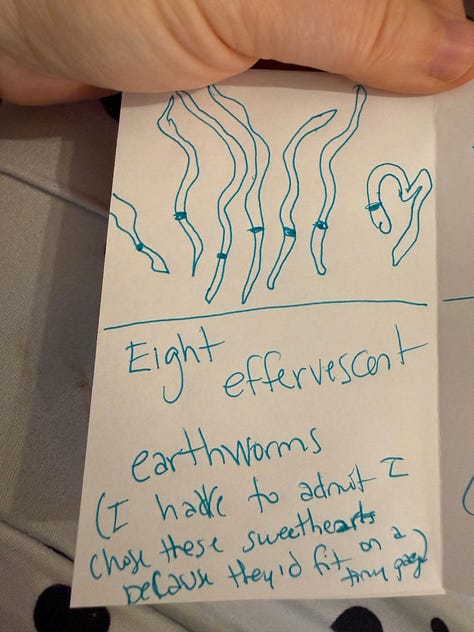 Eight
effervescent
earthworms
(I hadve to admit I
chose these sweethearts
because they'd fit on a
tiny page)